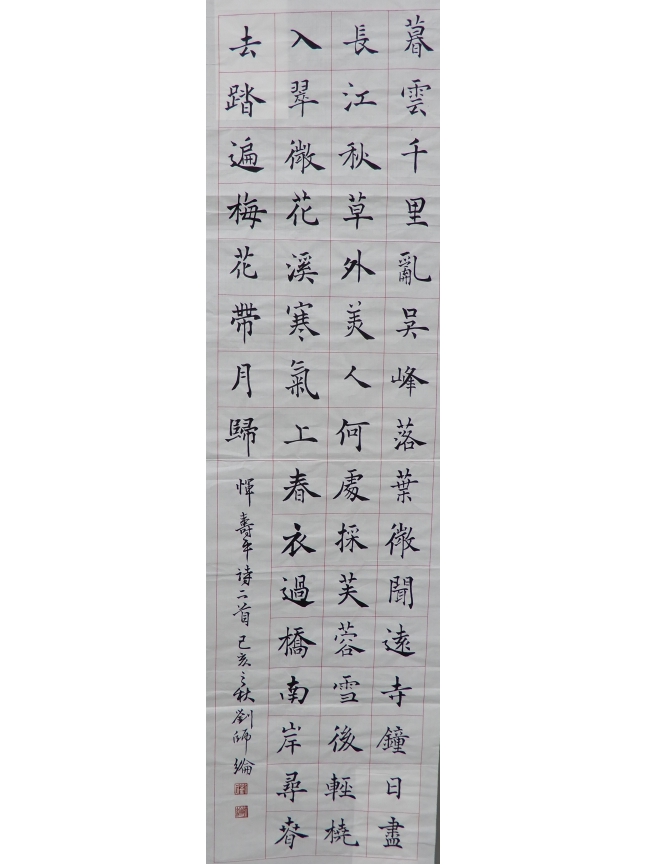 暮雲千里亂吳峰落葉微聞遠寺鐘日盡
長江秋草外美人何處採芙蓉雪後輕橈
入翠微花溪寒氣上春衣過橋南岸尋春
去踏遍梅花帶月歸
惲壽平詩二首己亥之秋劉師綸